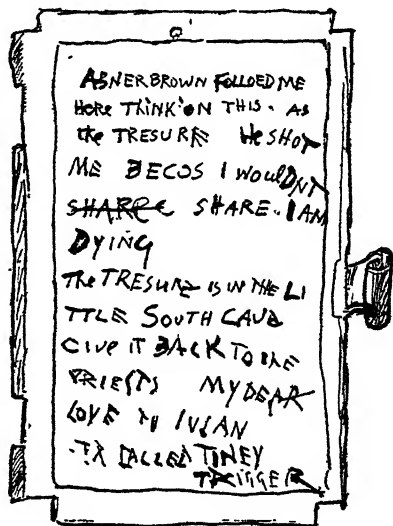 ABNER BROWN FOLLOED ME
HERE THINK'ON THIS. AS
the TRESURE HE SHOT
ME BECOS I WOULDNT
SHARE. I AM
DYING
The TRESURE IS IN THE LI
TTLE SOUTH CAVE
GIVE IT BACK TO THE
PRIESTS MY DEAR
LOVE TO
CALLED TINEY
TRIGGER